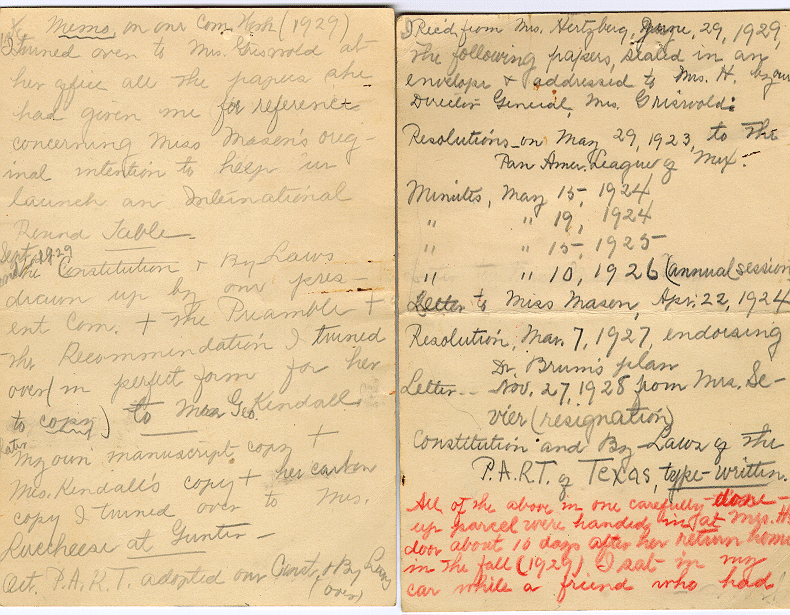 Memo on our Com. Work (1929)
I turned over to Mrs. Griswold at
her office all the papers she
had given me for reference
concerning Miss Mason's orig-
inal intention to help in
launch an International
Round Table.
Sept. 1929
The Constitution & By Laws
drawn up by our pres-
ent Com. + the Preamble +
the Recommendation I turned
over (in perfect form for her
to copy) to Mrs. Geo. Kendall.
Later
My own manuscript copy +
Mrs. Kendall's copy + her carbon
copy I turned over to Mrs.
Rucchesse at Gunter -
Oct. P.A.R.T. adopted our Const. & By Laws
(over)
I Rec'd from Mrs. Hertzberg, June, 29, 1929,
the following papers, sealed in an
envelope & addressed to Mrs. H. by our
Director General, Mrs. Griswold:
Resolutions on May 29, 1923, to the
Pan Amer. League of Mex.
Minutes, May 15, 1924
" " 19, 1924
" " 15, 1925
" " 10, 1926 (annual session
Letter to Miss Mason, Apr. 22, 1924
Resolution, Mar. 7, 1927, endorsing
Dr. Brum's plan
Letter - Nov. 27, 1928 from Mrs. Se-
vier (resignation)
Constitution and By-Laws of the
P.A.R.T. of Texas, type-written.
All of the above in one carefully done-
up parcel were handed in at Mrs. H's
door about 10 days after her return home
in the fall (1929) I sat in my
car while a friend who had